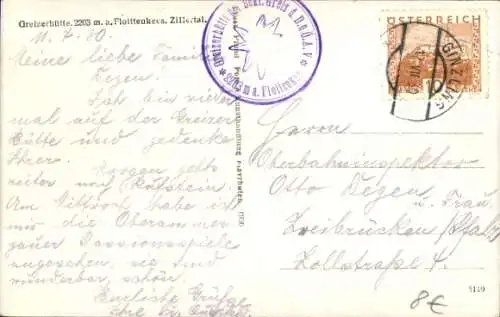 Greizerhütte, 2203 m. a. Floitenkees. Zillertal.
11. 7. 30.
Meine liebe Familie
Degen!
Ich bin wieder
mal auf der Greizer
Hütte und gedenke
Ihrer.
Morgen geht's
weiter nach
Am Mittwoch habe ich
mir die Oberammer-
gauer Passionsspiele
angesehen, sie sind
wunderbar schön.
Herzliche Grüße
Ihr
Greizerhütte der Sekt. Greiz d. D. & Ö. A. V.
2203 m a. Floitengrund
ÖSTERREICH
GINZLING
Herrn
Oberbahninspektor
Otto Degen
u. Frau
Zweibrücken (Pfalz)
Zollstraße 4.
5149
8€